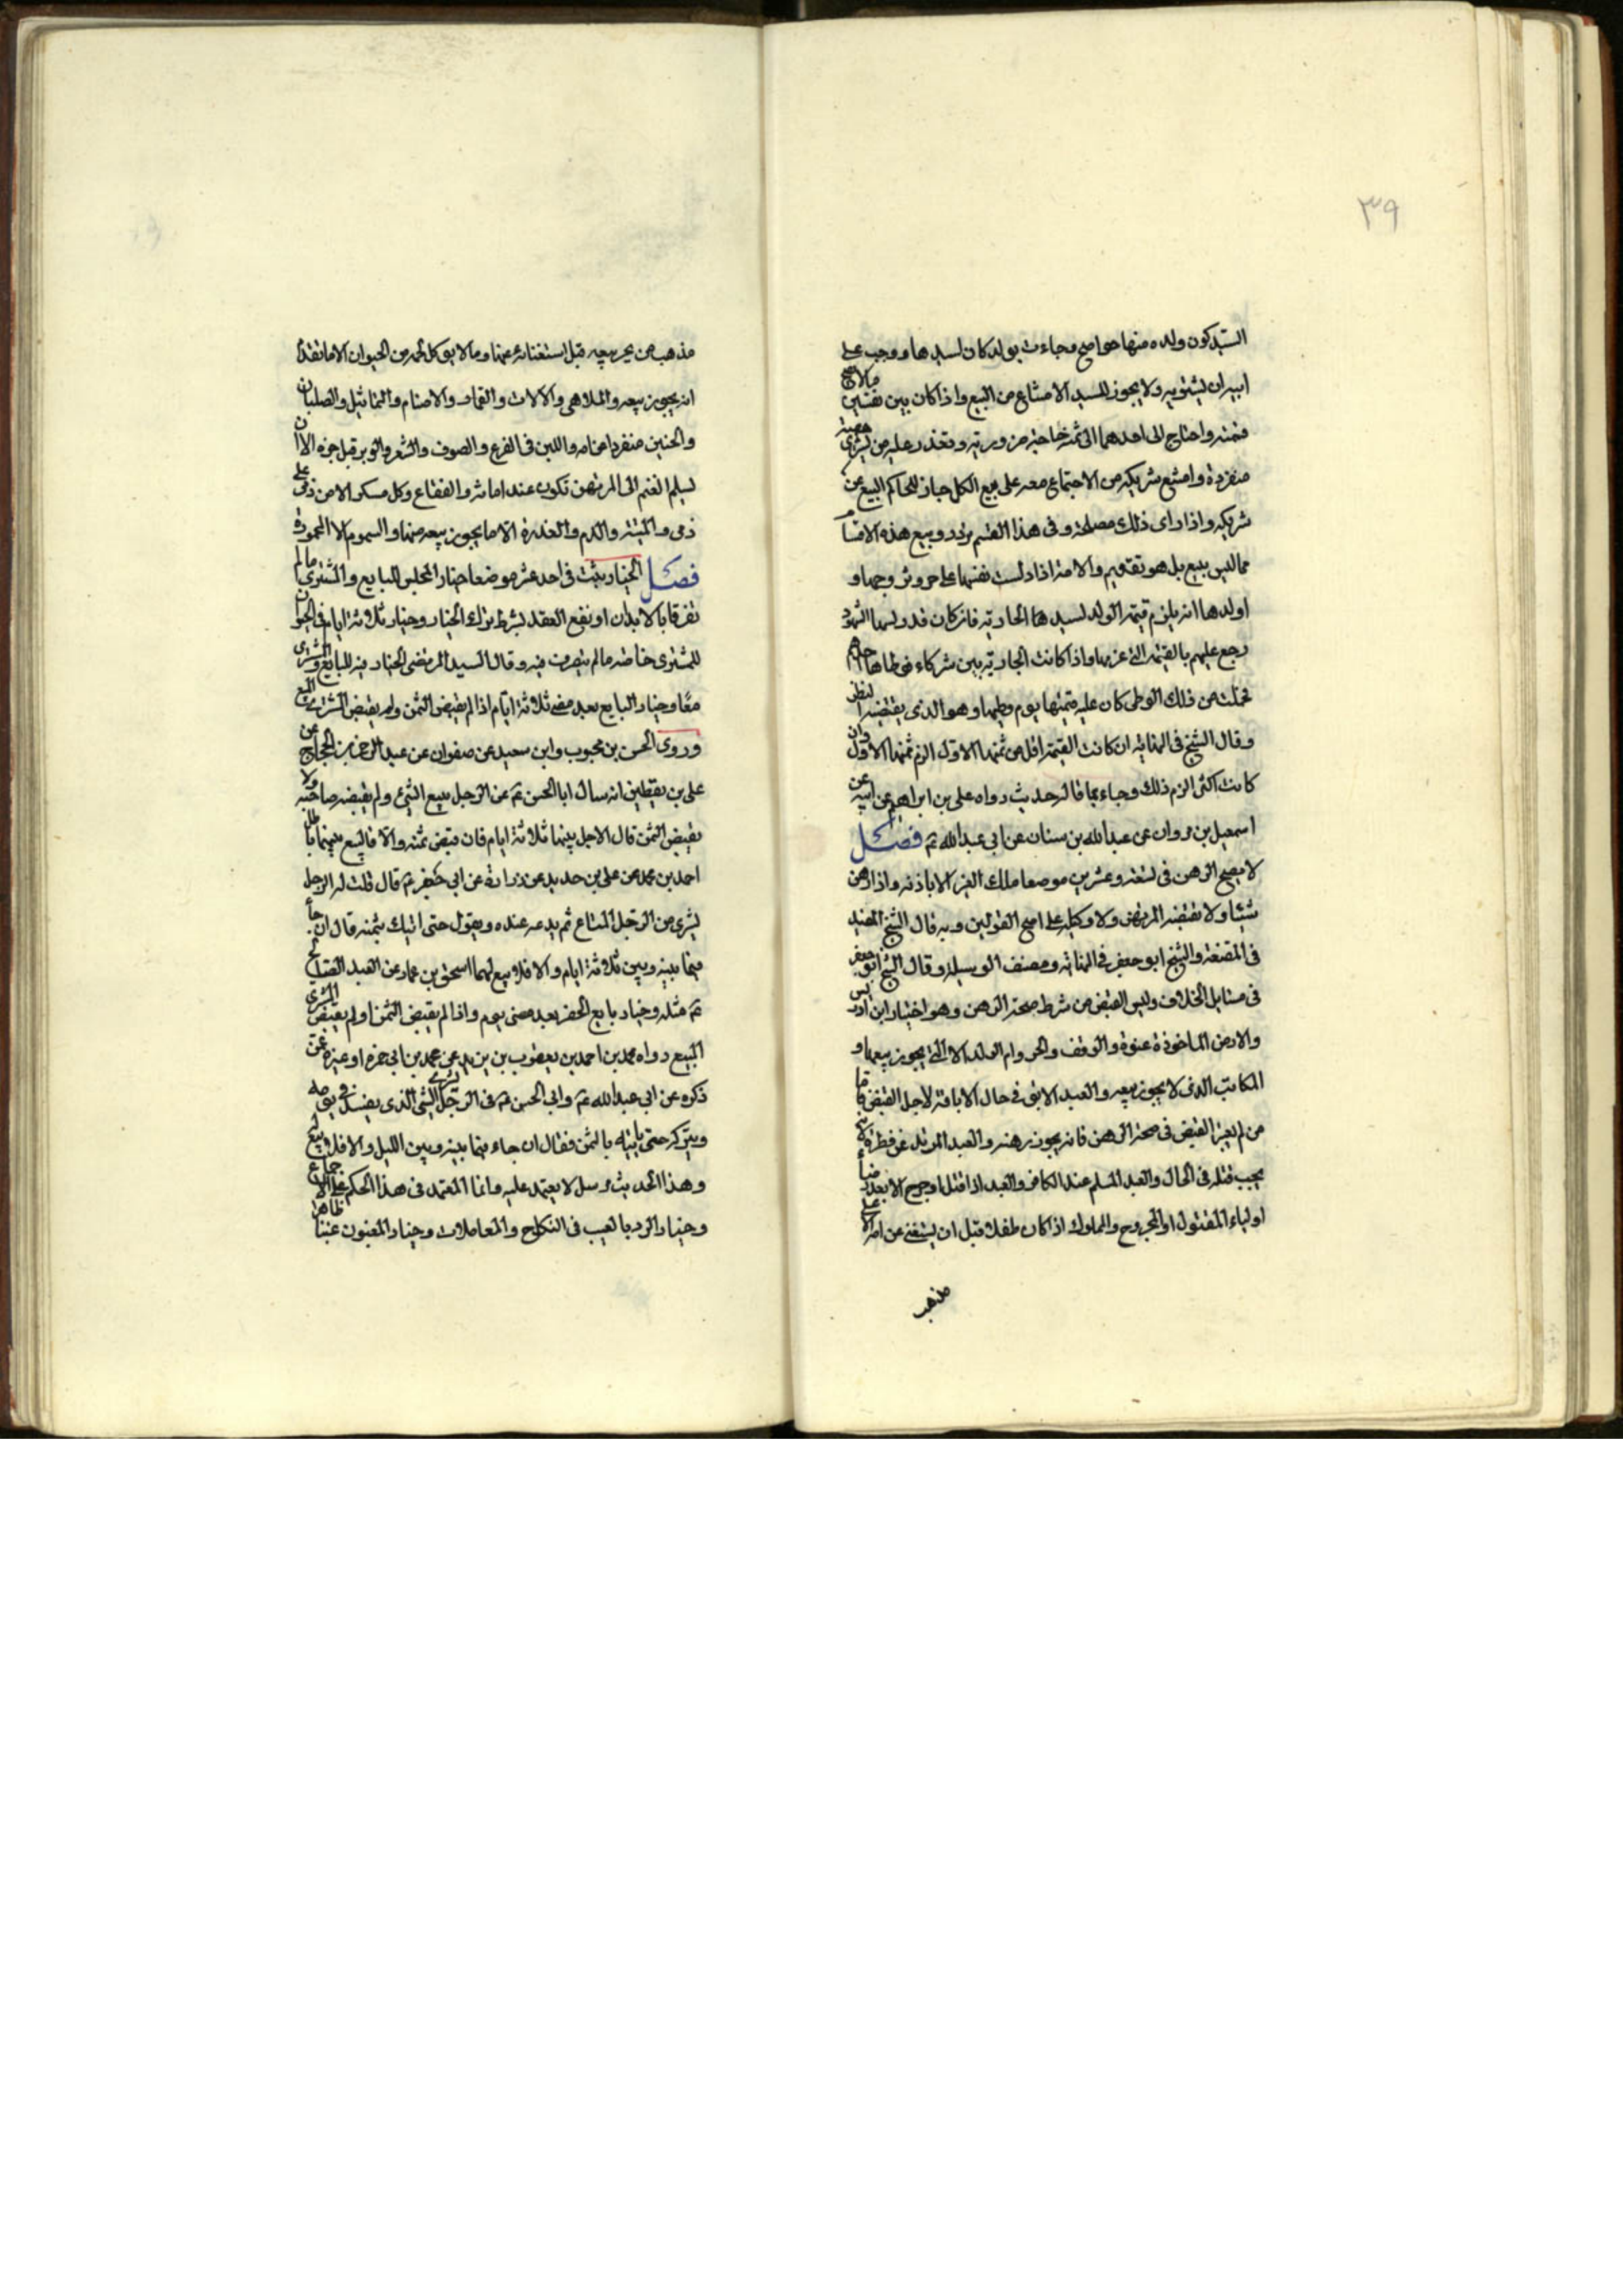 ٣٩
السيد كون ولده منها حرا صح وجاءت بولد كان لسيدها ووجب على
ابيه ان يشتريه ولا يجوز للسيد الامتناع من البيع واذا كان بين نفسين مالا يصح
قسمته واحتاج احدهما الى ثمنه خاصة من ورثته وتعذر عليه من يشترى حصته
منفردة وامتنع شريكه من الاجتماع معه على بيع الكل جاز للحاكم البيع عن
شريكه واذا راى ذلك مصلحة وفى هذا القسم تردد وبيع هذه الاقسام
مما ليس ببيع بل هو تقويم والامة اذا دلست نفسها على حر وتزوجها و
اولدها انه يلزم قيمة الولد لسيدها الجارية فان كان قد دلسها الشهود
رجع عليهم بالقيمة التى غرمها واذا كانت الجارية بين شركاء فوطاها احدهم
فحملت من ذلك الوطى كان عليه قيمتها يوم وطيها وهو الذى يقتضيه النظر
وقال الشيخ فى النهاية ان كانت القيمة اقل من ثمنها الاول الزم ثمنها الاول وان
كانت اكثر الزم ذلك وجاء بما قاله حديث رواه على بن ابراهيم عن ابيه عن
اسمعيل بن مروان عن عبدالله بن سنان عن ابى عبدالله ع فصل
لا يصح الرهن فى تسعة وعشرين موضعا ملك الغير الا باذنه واذا رهن
شيئا ولا يقبضه المرتهن ولا وكيله على اصح القولين وبه قال الشيخ المفيد
فى المقنعة والشيخ ابو جعفر فى النهاية ومصنف الوسيلة وقال الشيخ ابو جعفر
فى مسايل الخلاف وليس القبض من شرط صحة الرهن وهو اختيار ابن ادريس
والارض الماخوذة عنوة والوقف والحر وام الولد الا التى يجوز بيعها و
المكاتب الذى لا يجوز بيعه والعبد الابق فى حال الاباقة لاجل القبض فاما
من لم يعتبر القبض فى صحة الرهن فانه يجوز رهنه والعبد المرتد عن فطرة لانه
يجب قتله فى الحال والعبد المسلم عند الكافر والعبد اذا قتل او جرح الا بعد رضا
اولياء المقتول او المجروح والمملوك اذا كان طفلا قبل ان يستغنى عن امه على
مذهب
مذهب من يحرم بيعه قبل استغنائه عنها وما لا يوكل لحمه من الحيوان الا ما تقدم
انه يجوز بيعه والملاهى والالات والقمار والاصنام والتماثيل والصلبان
والجنين منفردا عن امه واللبن فى الضرع والصوف والشعر والوبر قبل جزه الا ان
يسلم الغنم الى المرتهن تكون عنده امانة والفقاع وكل مسكر الا من ذمى على
ذمى والميتة والدم والعذرة الا ما يجوز بيعه منها والسموم الا المحمودة
فصل الخيار يثبت فى احد عشر موضعا خيار المجلس للبايع والمشترى ما لم
تفرقا بالابدان او يقع العقد بشرط ترك الخيار وخيار ثلاثة ايام فى الحيوان
للمشترى خاصة ما لم يتصرف فيه وقال السيد المرتضى الخيار فيه للبايع والمشترى
معًا وخيار البايع بعد مضى ثلاثة ايام اذا لم يقبض الثمن ولم يقبض المشترى المبيع
وروى الحسن بن محبوب وابن سعيد عن صفوان عن عبد الرحمن بن الحجاج عن
على بن يقطين انه سال ابا الحسن ع عن الرجل يبيع الشىء ولم يقبضه صاحبه ولا
يقبض الثمن قال الاجل بينهما ثلاثة ايام فان قبض ثمنه والا فالبيع بينهما باطل
احمد بن محمد عن على بن حديد عن زرارة عن ابى جعفر ع قال قلت له الرجل
يشترى من الرجل المتاع ثم يدعه عنده ويقول حتى اتيك بثمنه قال ان جاء
فيما بينه وبين ثلاثة ايام والا فلا بيع لهما اسحق بن عمار عن العبد الصالح
ع مثله وخيار بايع الخضر بعد مضى يوم واذا لم يقبض الثمن او لم يقبض المشترى
المبيع رواه محمد بن احمد بن يعقوب بن يزيد عن محمد بن ابى حمزه او غيره عمن
ذكره عن ابى عبدالله ع وابى الحسن ع فى الرجل يشترى الشى الذى يفسد فى يومه
ويتركه حتى ياتيه بالثمن فقال ان جاء فيما بينه وبين الليل والا فلا بيع له
وهذا الحديث مرسل لا يعتمد عليه وانما المعتمد فى هذا الحكم على الاجماع
وخيار الرد بالعيب فى النكاح والمعاملات وخيار المغبون غبنا ظاهرا